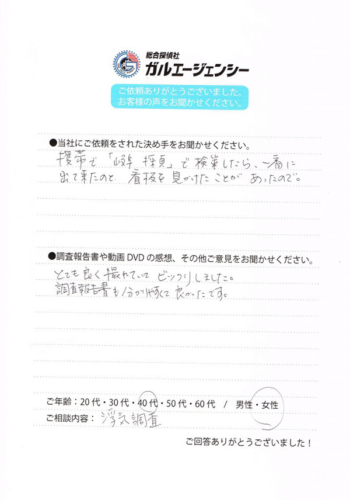 総合探偵社
ガルエージェンシー
ご依頼ありがとうございました。
お客様の声をお聞かせください。
●当社にご依頼をされた決め手をお聞かせください。
携帯で「岐阜 探偵」で検索したら、一番に
出て来たのと 看板を見かけたことが あったので。
●調査報告書や動画DVDの感想、その他ご意見をお聞かせください。
とても良く撮れていて ビックリしました。
調査報告書も分かりやすくて良かったです。
ご年齢：20代・30代・40代・50代・60代 / 男性・女性
ご相談内容： 浮気調査
ご回答ありがとうございました！